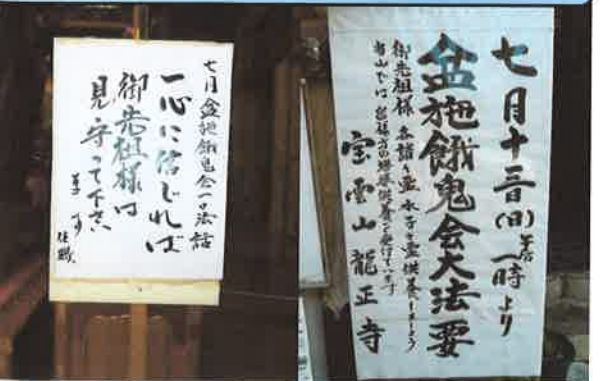 七月盆施餓鬼会一口法話
一心に信じれば
御先祖様は
見守って下さい
ます
住職
七月十三日(日)午后一時より
盆施餓鬼会大法要
御先祖様 各諸々霊 水子之霊供養しましょう
当山では 皆様方の供養を受付ています
宝雲山龍正寺